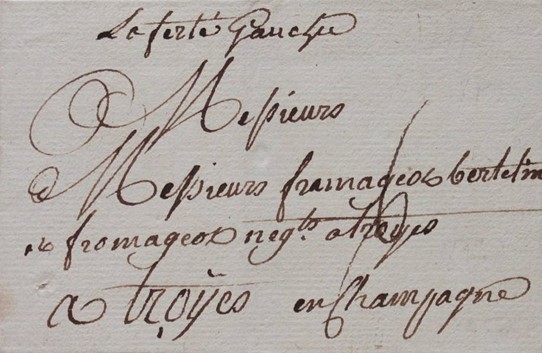 La ferté Gauche
A Messieurs
Messieurs fromageot bertelin
et fromageot negts a troyes
a troÿes en Champagne